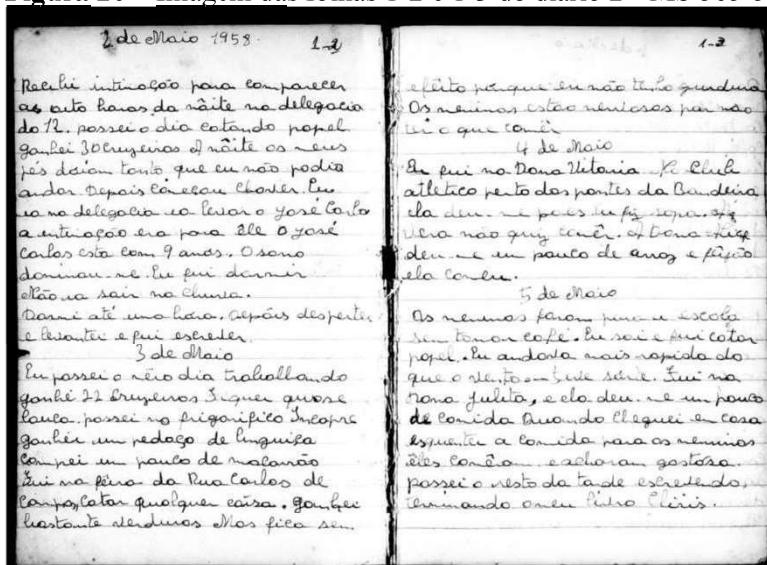 2 de Maio 1958. 1-2
Recebi intimação para comparecer
as oito horas da nôite na delegacia
do 12. passei o dia catando papel
ganhei 30 cruzeiros A nôite os meus
pés doiam tanto que eu não podia
andar. Depois começou chover. Eu
ia na delegacia ia levar o José Carlos
a intimação era para ele O José
Carlos esta com 9 anos. O sono
dominou-me. Eu fui dormir
Não ia sair na chuva.
Dormi até uma hora. depois despertei
e levantei e fui escrever
3 de Maio
Eu passei o dia trabalhando
ganhei 22 Cruzeiros Fiquei quase
louca. passei no frigorifico
ganhei um pedaço de linguiça
compei um pouco de macarrão
Fui na feira da Rua Carlos de
Campos, catar qualquer coisa. ganhei
bastante verduras Mas fica sem
1-3
efêito porque eu não tenho gurdura
Os meninos estão nervosos por não
ter o que comêr
4 de Maio
Eu fui na Dona Vitoria Club
atlético perto das pontes da Bandeira
ela deu-me eu fiz sopa. A
Vera não quiz comêr. A Dona
deu-me um pouco de arroz e feijão
ela comeu.
5 de Maio
Os meninos foram para a escola
sem tomar café. Eu sai e fui catar
papel. Eu andava mais rapida do
que o vento Fui na
Dona Julita, e ela deu-me um pouco
de comida Quando cheguei em casa
esquentei a comida para os meninos
êles comêram e acharam gostosa.
passei o resto da tarde escrevendo,
terminando o meu